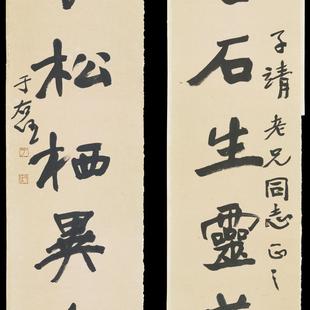 子靖老兄同志正之
石生靈
松栖異
于右任